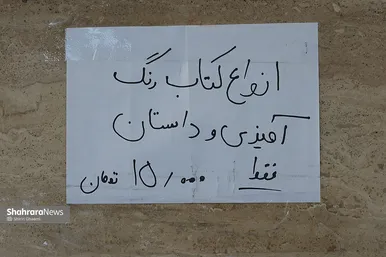 انواع کتاب رنگ
آمیزی و داستان
فقط
۱۵/۰۰۰ تومان
ShahraraNews